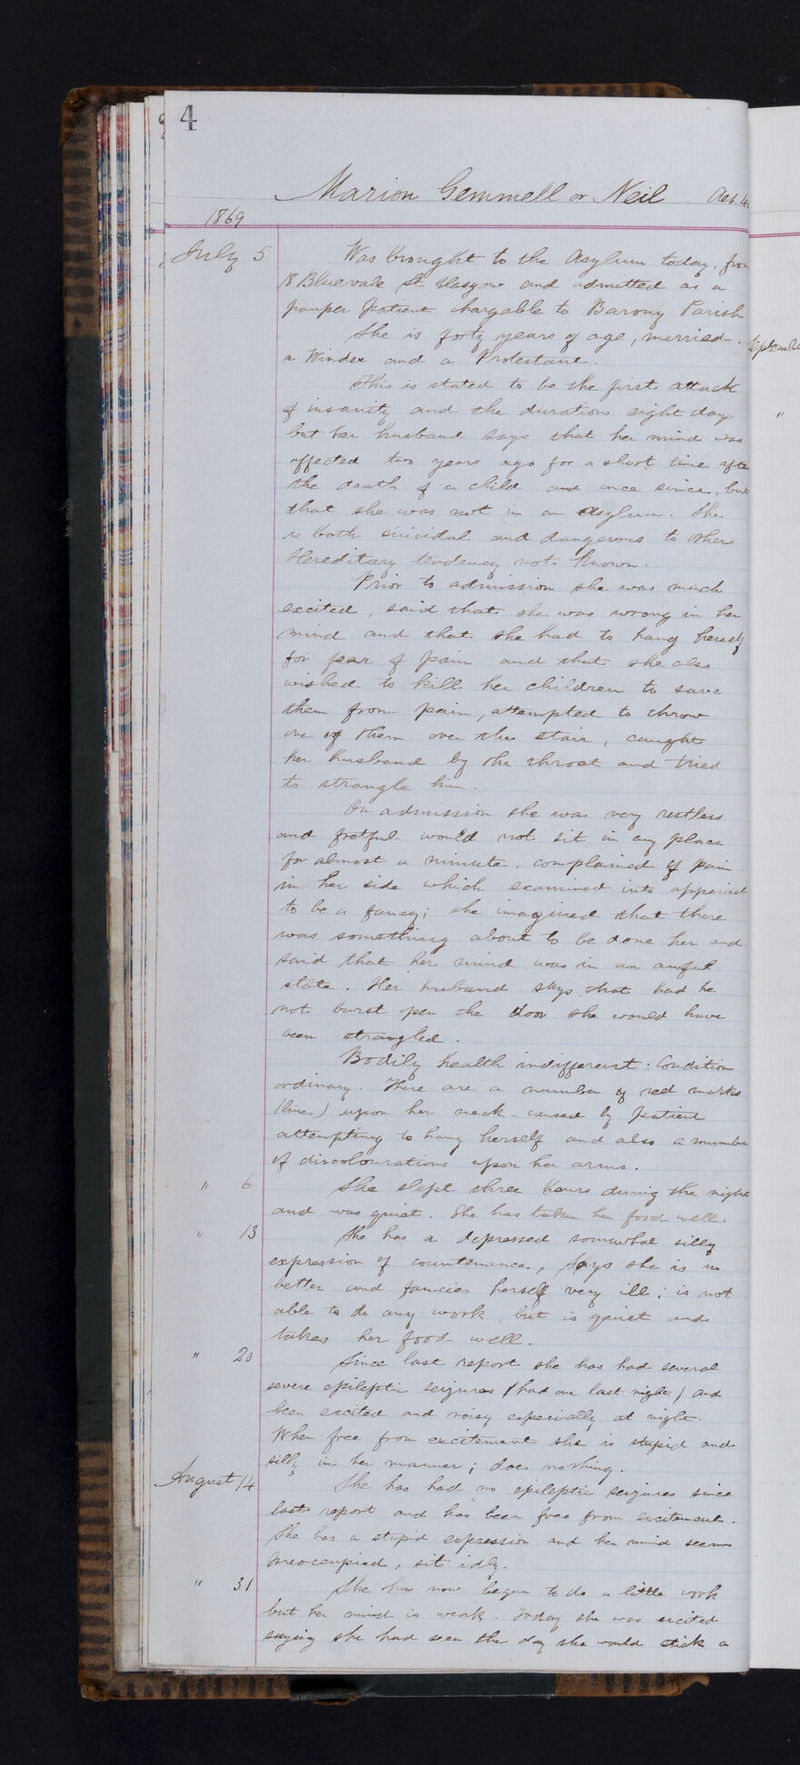 4
Marion Gemmell or Neil Aet. 40
1869
July 5 Was brought to the Asylum today, from
18 Bluevale St Glasgow and admitted as a
pauper patient chargable to Barony Parish
She is forty years of age, married.
a Winder and a Protestant.
This is stated to be the first attack
of insanity and the duration eight days
but her husband says that her mind was
affected two years ago for a short time after
the death of a child and once since, but
that she was not in an Asylum. She
is both suicidal and dangerous to other
Hereditary tendency not known.
Prior to admission she was much
excited, said that she was wrong in her
mind and that she had to hang herself
for fear of pain and that she also
wished to kill her children to save
them from pain, attempted to throw
one of them over the stair, caught
her husband by the throat and tried
to strangle him.
On admission she was very restless
and fretful would not sit in any place
for almost a minute. complained of pain
in her side which examined into appeared
to be a fancy; she imagined that there
was something about to be done her and
said that her mind was in an awful
state. Her husband says that had he
not burst open the door she would have
been strangled.
Bodily health indifferent: Condition
ordinary. There are a number of red marks
(lines) upon her neck caused by patient
attempting to hang herself and also a number
of discolourations upon her arms.
" 6 She slept three hours during the night
and was quiet. She has taken her food well.
" 13 She has a depressed somewhat silly
expression of countenance, says she is no
better and fancies herself very ill; is not
able to do any work, but is quiet and
takes her food well.
" 20 Since last report she has had several
severe epileptic seizures (had one last night) and
been excited and noisy especially at night.
When free from excitement she is stupid and
silly in her manner; does nothing.
August 14 She has had no epileptic seizures since
last report and has been free from excitement.
She has a stupid expression and her mind seems
preoccupied, sits idly.
" 31 She has now begun to do a little work
but her mind is weak. Today she was excited
saying she had seen the day she would stick a
Septembe
"